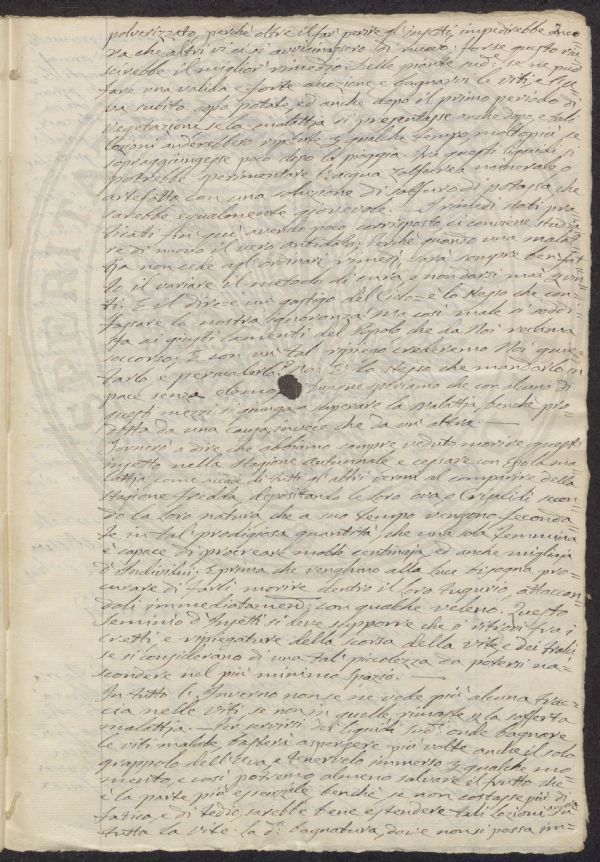 polverizzato, perchè oltre il far perire gl'insetti, impedirebbe anco-
ra che altri vi ci si avvicinassero di nuovo; forse questo riu-
scirebbe il miglior rimedio. Delle piante sud.e se ne può
fare una valida e forte decozione e bagnarvi le viti e l'u-
va subito dopo potate, ed anche dopo il primo periodo di
vegetazione se la malattia si presentasse anche dopo, e tali
lozioni anderebbero ripetute qualche tempo molto più se
sopraggiungesse poco dopo la pioggia. Fra questi liquidi si
potrebbe sperimentare l'acqua Zolfurea naturale o
artefatta con una soluzione di solfuro di potassa che
sarebbe egualmente giovevole. I rimedi stati pra-
ticati fin qui avendo poco corrisposto ci conviene studia-
re di nuovo il vero antidoto; perchè quando una malat-
tia non cede agli ordinari rimedi, sarà sempre ben fat-
to il variare il metodo di cura e non darsi mai vin-
ti. E il dire è un gastigo del Cielo è lo stesso che con-
fessare la nostra ignoranza. Ma così male si soddi-
sfa ai giusti lamenti del Popolo che da Noi reclama
soccorso; E con un tal ripiego crederemo Noi quie-
tarlo e persuaderlo? No: È lo stesso che mandarlo in
pace senza elemo Dunque speriamo che con alcuno di
questi mezzi si giunga a superare la malattia, benchè pro-
dotta da una causa, invece che da un'altra.
Tornerò a dire che abbiamo sempre veduto morire questi
insetto nella Stagione autunnale e cessare con esso la ma-
lattia, come accade di tutti gli altri vermi al comparire della
stagione fredda, depositando le loro ova o Crisalidi secon-
do la loro natura che a suo tempo vengono feconda-
te in tal prodigiosa quantità, che una sola femmina
è capace di procreare molte centinaja ed anche migliaja
d'Individui; E prima che venghino alla luce bisogna pro-
curare di farli morire dentro il loro tugurio, attaccan-
doli immediatamen: con qualche veleno. Questo
seminio d'Insetti si deve supporre che si ritrovi fra i
cretti e ripiegature della scorsa della vite e dei tralci
se si considerano di una tal piccolezza da potersi na-
scondere nel più minimo spazio. —
In tutto l'Inverno non se ne vede più alcuna trac-
cia nelle viti se non in quelle rimaste la sofferta
malattia. Per servirsi dei liquidi sud.i onde bagnare
le viti malate, basterà aspergere più volte anche il solo
grappolo dell'Uva, e tenervelo immerso qualche mo-
mento, e così potremo almeno salvare il frutto che
è la parte più essenziale benchè se non costasse più di
fatica, e di tedio, sarebbe bene estendere tali lozioni ancora su
tutta la vite. La d.a bagnatura, dove non si possa im-